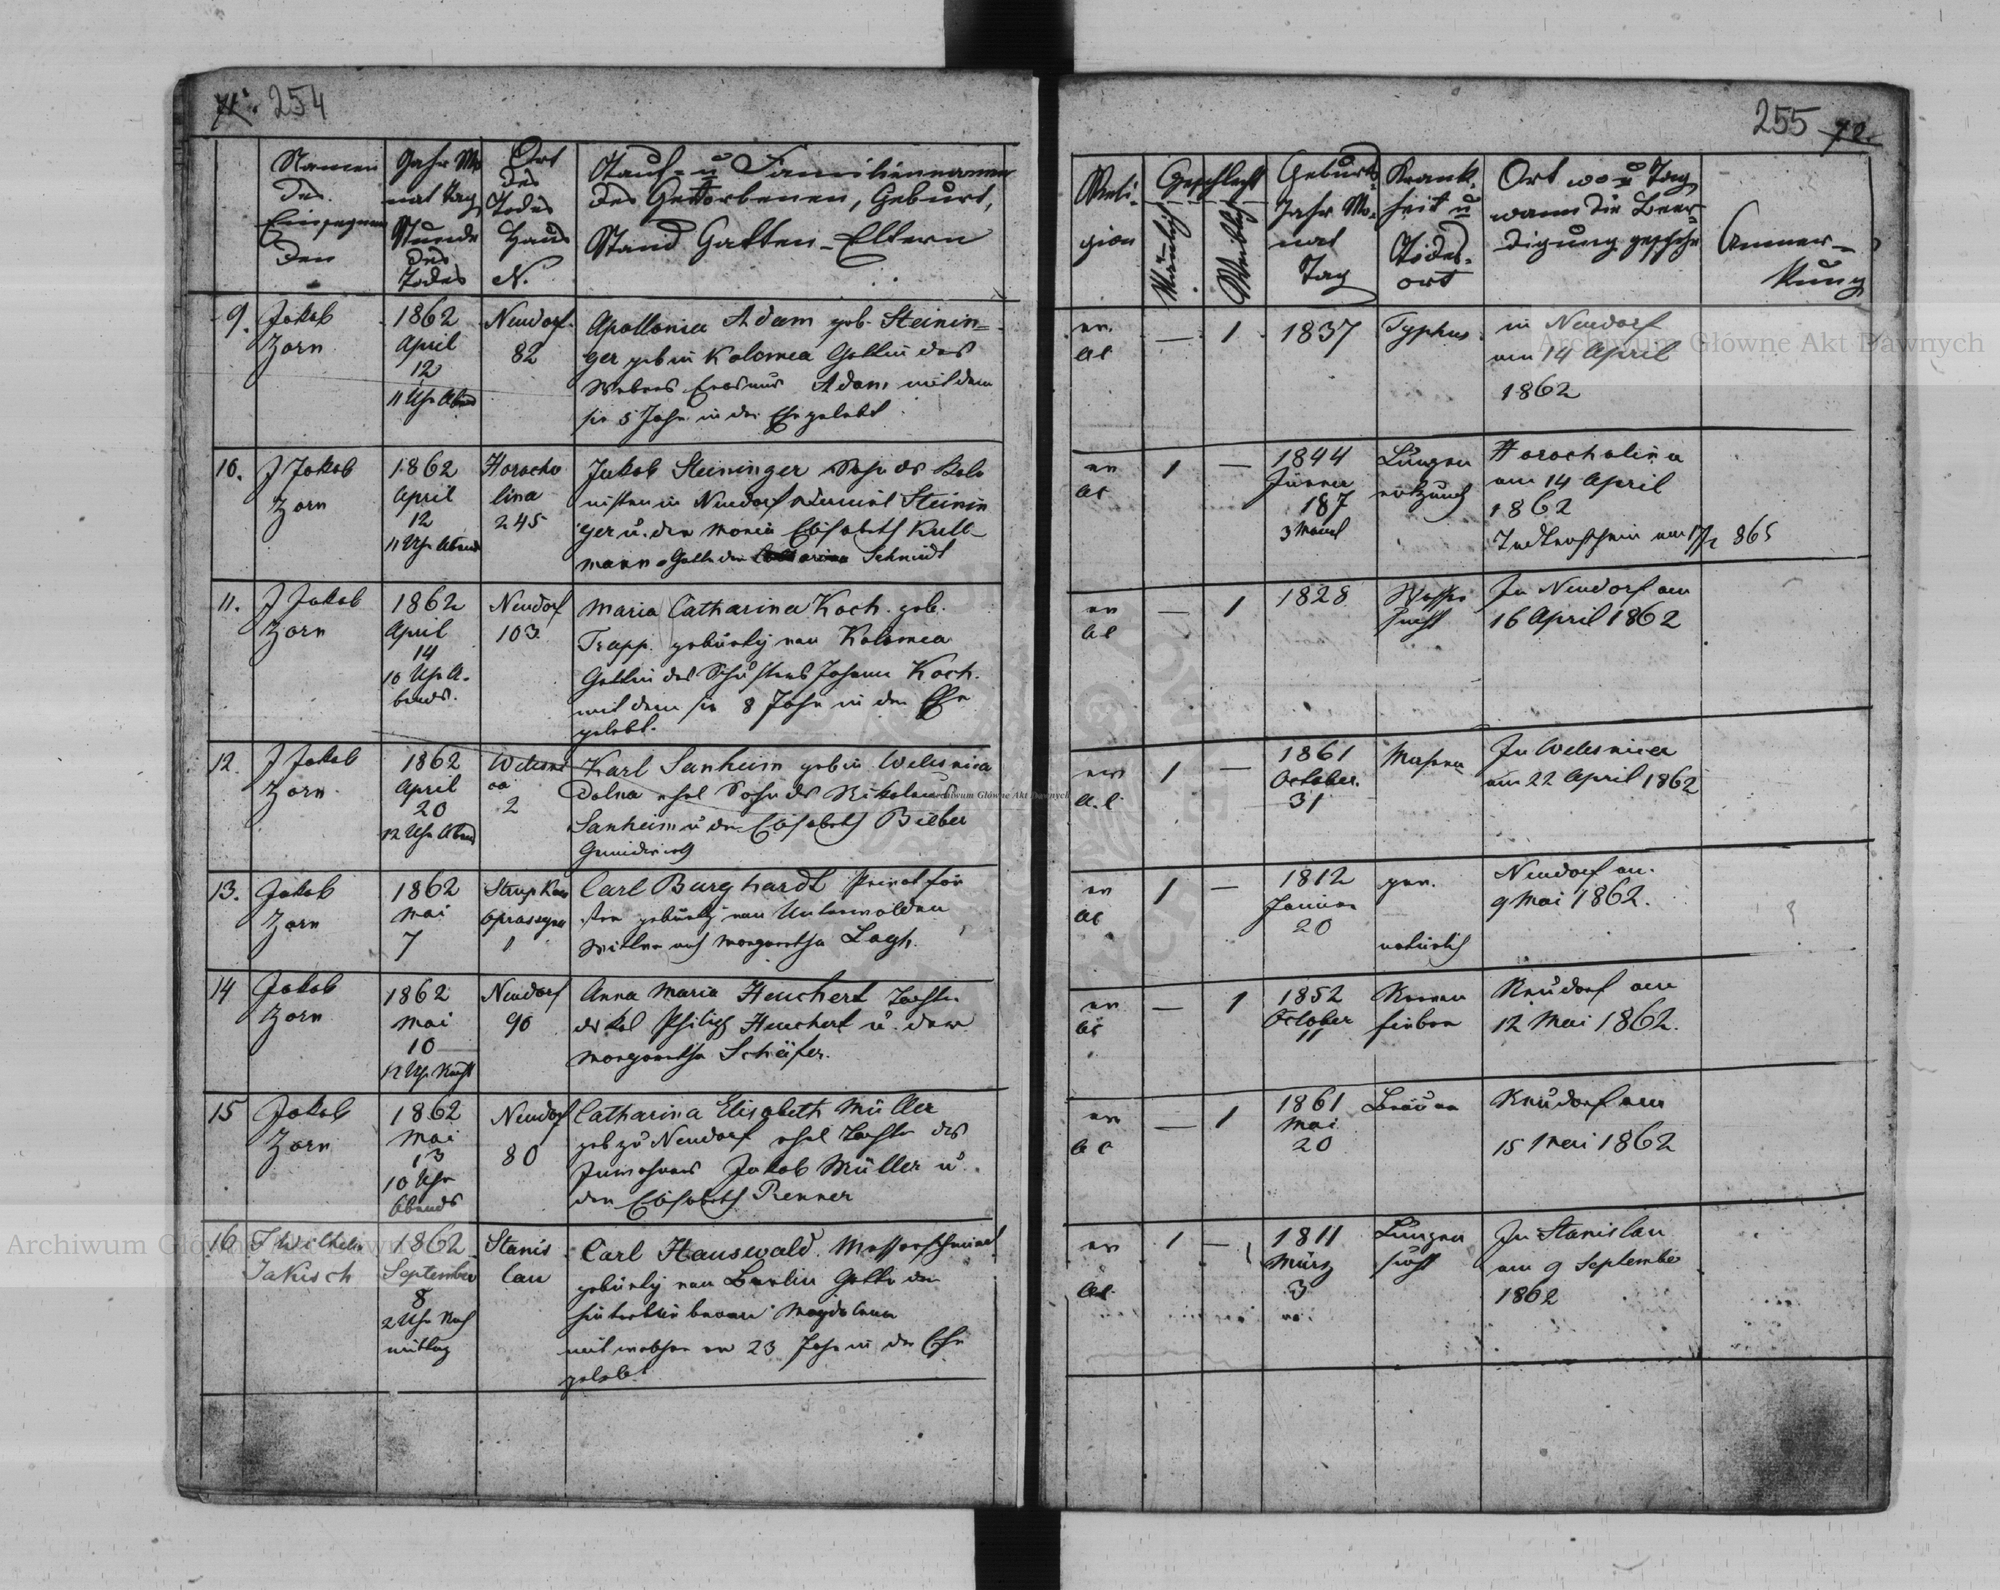 254
Namen
des
Einsegnen
den
Jahr Mo
nat Tag
Stunde
des
Todes
Ort
des
Todes
Haus
N.
Tauf- u Familiennamen
des Gestorbenen, Geburt,
Stand Gatten-Eltern
9.
Jakob
Zorn
1862
April
12
11 Uhr Abend
Neudorf
82
Apollonia Adam geb. Steinin=
ger geb in Kolomea Gattin des
Webers Erasmus Adam mit dem
sie 5 Jahr in der Ehe gelebt
10.
J Jakob
Zorn
1862
April
12
11 Uhr Abend
Horocho
lina
245
Jakob Steininger Sohn des Kolo
nisten in Neudorf Steinin
ger u. der Maria Elisabeth Kull-
mann Gatte der Schmidt
11.
J Jakob
Zorn
1862
April
14
10 Uhr A-
bends.
Neudorf
103
Maria Catharina Koch. geb.
Trapp. gebürtig von Kolomea
Gattin des Schusters Johann Koch.
mit dem sie 8 Jahr in der Ehe
gelebt.
12.
J Jakob
Zorn
1862
April
20
12 Uhr Abend
2
Karl Sanheim geb in Welesnica
Dolna ehel Sohn des Nikolaus
Sanheim u der Elisabeth Bieber
13.
Jakob
Zorn
1862
Mai
7
1
Carl Burghardt Privat för
ster gebürtig von Unterwalden
Witwer nach Margaretha Lagh.
14
Jakob
Zorn
1862
Mai
10
12 Uhr Nacht
Neudorf
90
Anna Maria Heuchert Tochter
des Kol Philipp Heuchert u. der
Margaretha Schäfer.
15
Jakob
Zorn
1862
Mai
13
10 Uhr
Abends
Neudorf
80
Catharina Elisabeth Müller
geb zu Neudorf ehel Tochter des
Inwohners Jakob Müller u.
der Elisabeth Renner
16
J Wilhelm
Jakisch
1862
September
8
2 Uhr Nach
mittag
Stanis
lau
Carl Hauswald. Messerschmied
gebürtig von Berlin Gatte der
hinterbliebenen Magdalena
mit welcher er 23 Jahr in der Ehe
gelebt
255
72
Reli-
gion
Geschlecht
Mänlich
Weiblich
Geburts-
Jahr Mo-
nat
Tag
Krank-
heit u
Todes-
ort
Ort wo u Tag
wann die Beer-
digung geschehn
Anmer-
kung
ev.
ac
—
1
1837
Typhus
in Neudorf
am 14 April
1862
ev
ac
1
—
1844
Jänner
187
Lungen
Horocholina
am 14 April
1862
Todtenschein am 17/2 865
ev
ac
—
1
1828
Wasser
sucht
In Neudorf am
16 April 1862
ev
a.c.
1
—
1861
October.
31
Masern
In Welesnica
am 22 April 1862
ev
ac
1
—
1812
Januar
20
natürlich
Neudorf am.
9 Mai 1862.
ev
ac
—
1
1852
October
11
Nerven
fieber
Neudorf am
12 Mai 1862.
ev
ac
—
1
1861
Mai
20
Neudorf am
15 Mai 1862
ev
ac.
1
—
1811
März
3
Lungen
sucht
In Stanislau
am 9 September
1862
Archiwum Główne Akt Dawnych
Archiwum Główne Akt Dawnych
Archiwum Główne Akt Dawnych